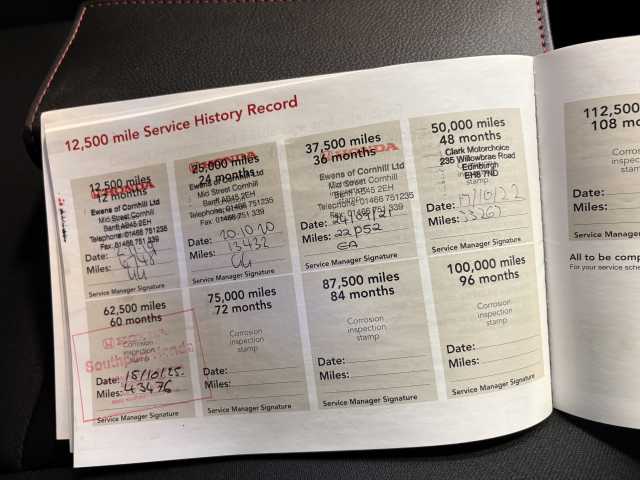 12,500 mile Service History Record
12,500 miles
12 months
HONDA
Ewens of Cornhill Ltd
Mid Street Cornhill
Banff AB45 2EH
Telephone: 01466 751235
Fax: 01466 751 339
Date:
Miles:
Service Manager Signature
25,000 miles
24 months
HONDA
Ewens of Cornhill Ltd
Mid Street Cornhill
Banff AB45 2EH
Telephone: 01466 751235
Fax: 01466 751 339
Date: 20.10.20
Miles: 13432
Service Manager Signature
37,500 miles
36 months
HONDA
Ewens of Cornhill Ltd
Mid Street Cornhill
Banff AB45 2EH
Telephone: 01466 751235
Fax: 01466 751 339
Date: 24/09/21
Miles: 22052
EA
Service Manager Signature
50,000 miles
48 months
Clark Motorchoice
235 Willowbrae Road
Edinburgh
EH8 7ND
stamp
Date: 17/10/22
Miles: 33267
Service Manager Signature
62,500 miles
60 months
Corrosion
inspection
stamp
Date: 15/10/25
Miles: 43476
Service Manager Signature
75,000 miles
72 months
Corrosion
inspection
stamp
Date:
Miles:
Service Manager Signature
87,500 miles
84 months
Corrosion
inspection
stamp
Date:
Miles:
Service Manager Signature
100,000 miles
96 months
Corrosion
inspection
stamp
Date:
Miles:
Service Manager Signature
112,500
108 mo
Corros
inspec
stam
Date:
Miles:
Service Manager
All to be comp
For your service sche